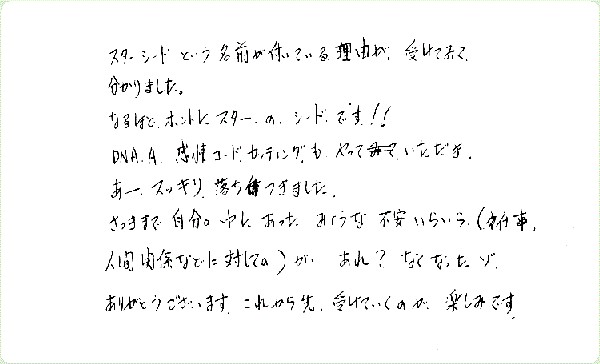 スターシードという名前が付いている理由が、受けてみて、
分かりました。
なるほど、ホントにスターのシードです!!
DNA.A. 感情コードカッティングも、やって いただき、
あー、スッキリ、落ち つきました。
さっきまで自分の中にあった、ような不安、いらいら、(お仕事、
人間関係などに対しての)が、あれ?なくなったゾ、
ありがとうございます。これから先、受けていくのが、楽しみです